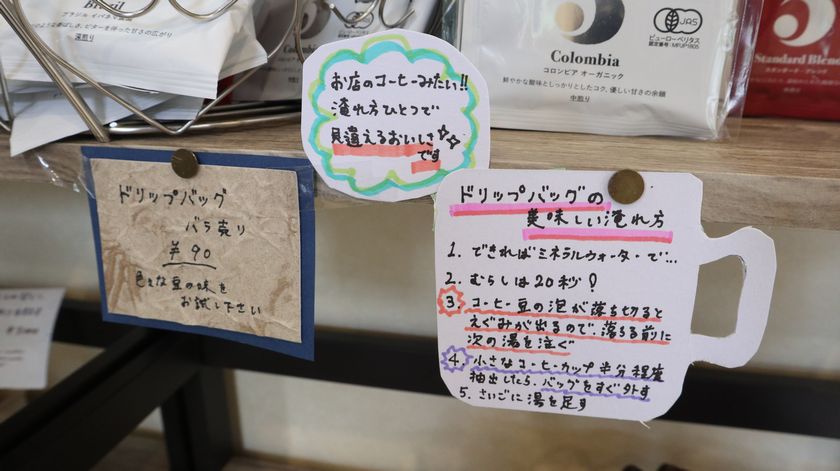 Brasil
深煎り
お店のコーヒーみたい!!
淹れ方ひとつで
見違えるおいしさ
です
Colombia
コロンビア オーガニック
鮮やかな酸味としっかりとしたコク、優しい甘さの余韻
中煎り
JAS
ビューローベリタス
認定番号:MFUP1805
Standard Blend
ドリップバッグ
バラ売り
¥90
色々な豆の味を
お試し下さい
ドリップバッグの
美味しい淹れ方
1. できればミネラルウォーターで…
2. むらしは20秒!
3 コーヒー豆の泡が落ち切ると
えぐみが出るので、落ちる前に
次の湯を注ぐ
4. 小さなコーヒーカップ半分程度
抽出したら、バッグをすぐ外す
5. さいごに湯を足す